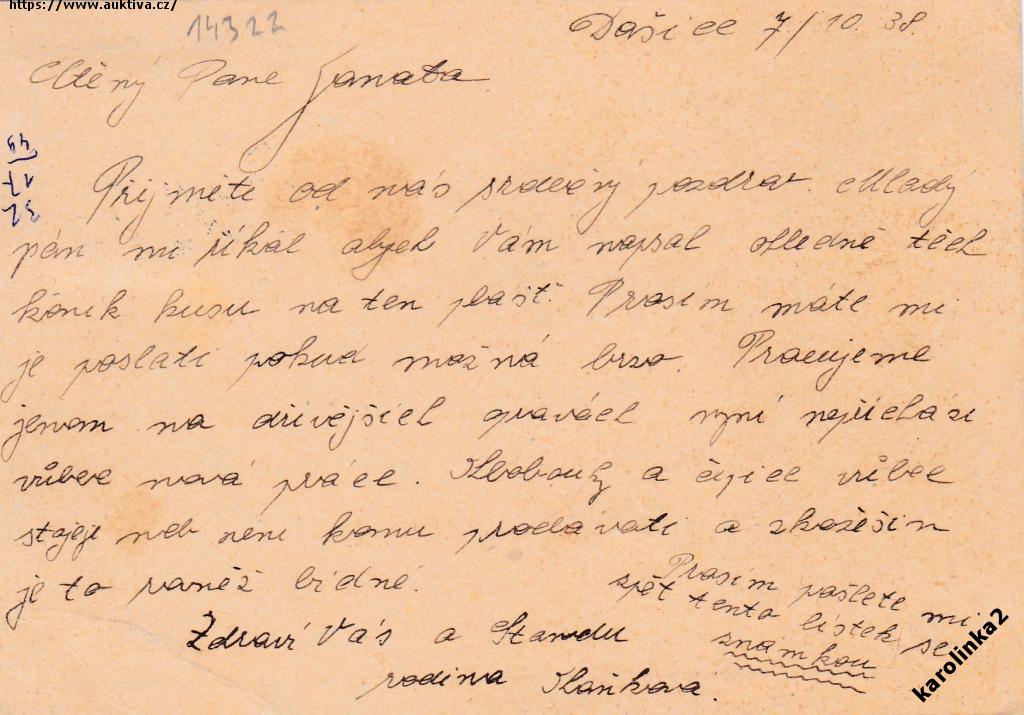 https://www.auktiva.cz/
14322
Dašice 7/10. 38.
Ctěný Pane Janata
Přijměte od nás srdečný pozdrav. Mladý
pán mi říkal abych Vám napsal ohledně těch
konik kusu na ten plášť. Prosím máte mi
je poslati pokud možná brzo. Pracujeme
jenom na dřívějšich opravách nyní nepřichází
vůbec nová práce. Klobouky a čepice vůbec
stojeji neb není komu prodávati a s kožešin
je to rovněž bídné.
Prosím pošlete mi
zpět tento lístek se
známkou
Zdraví Vás a Standu
rodina Kaňková.
karolinka2